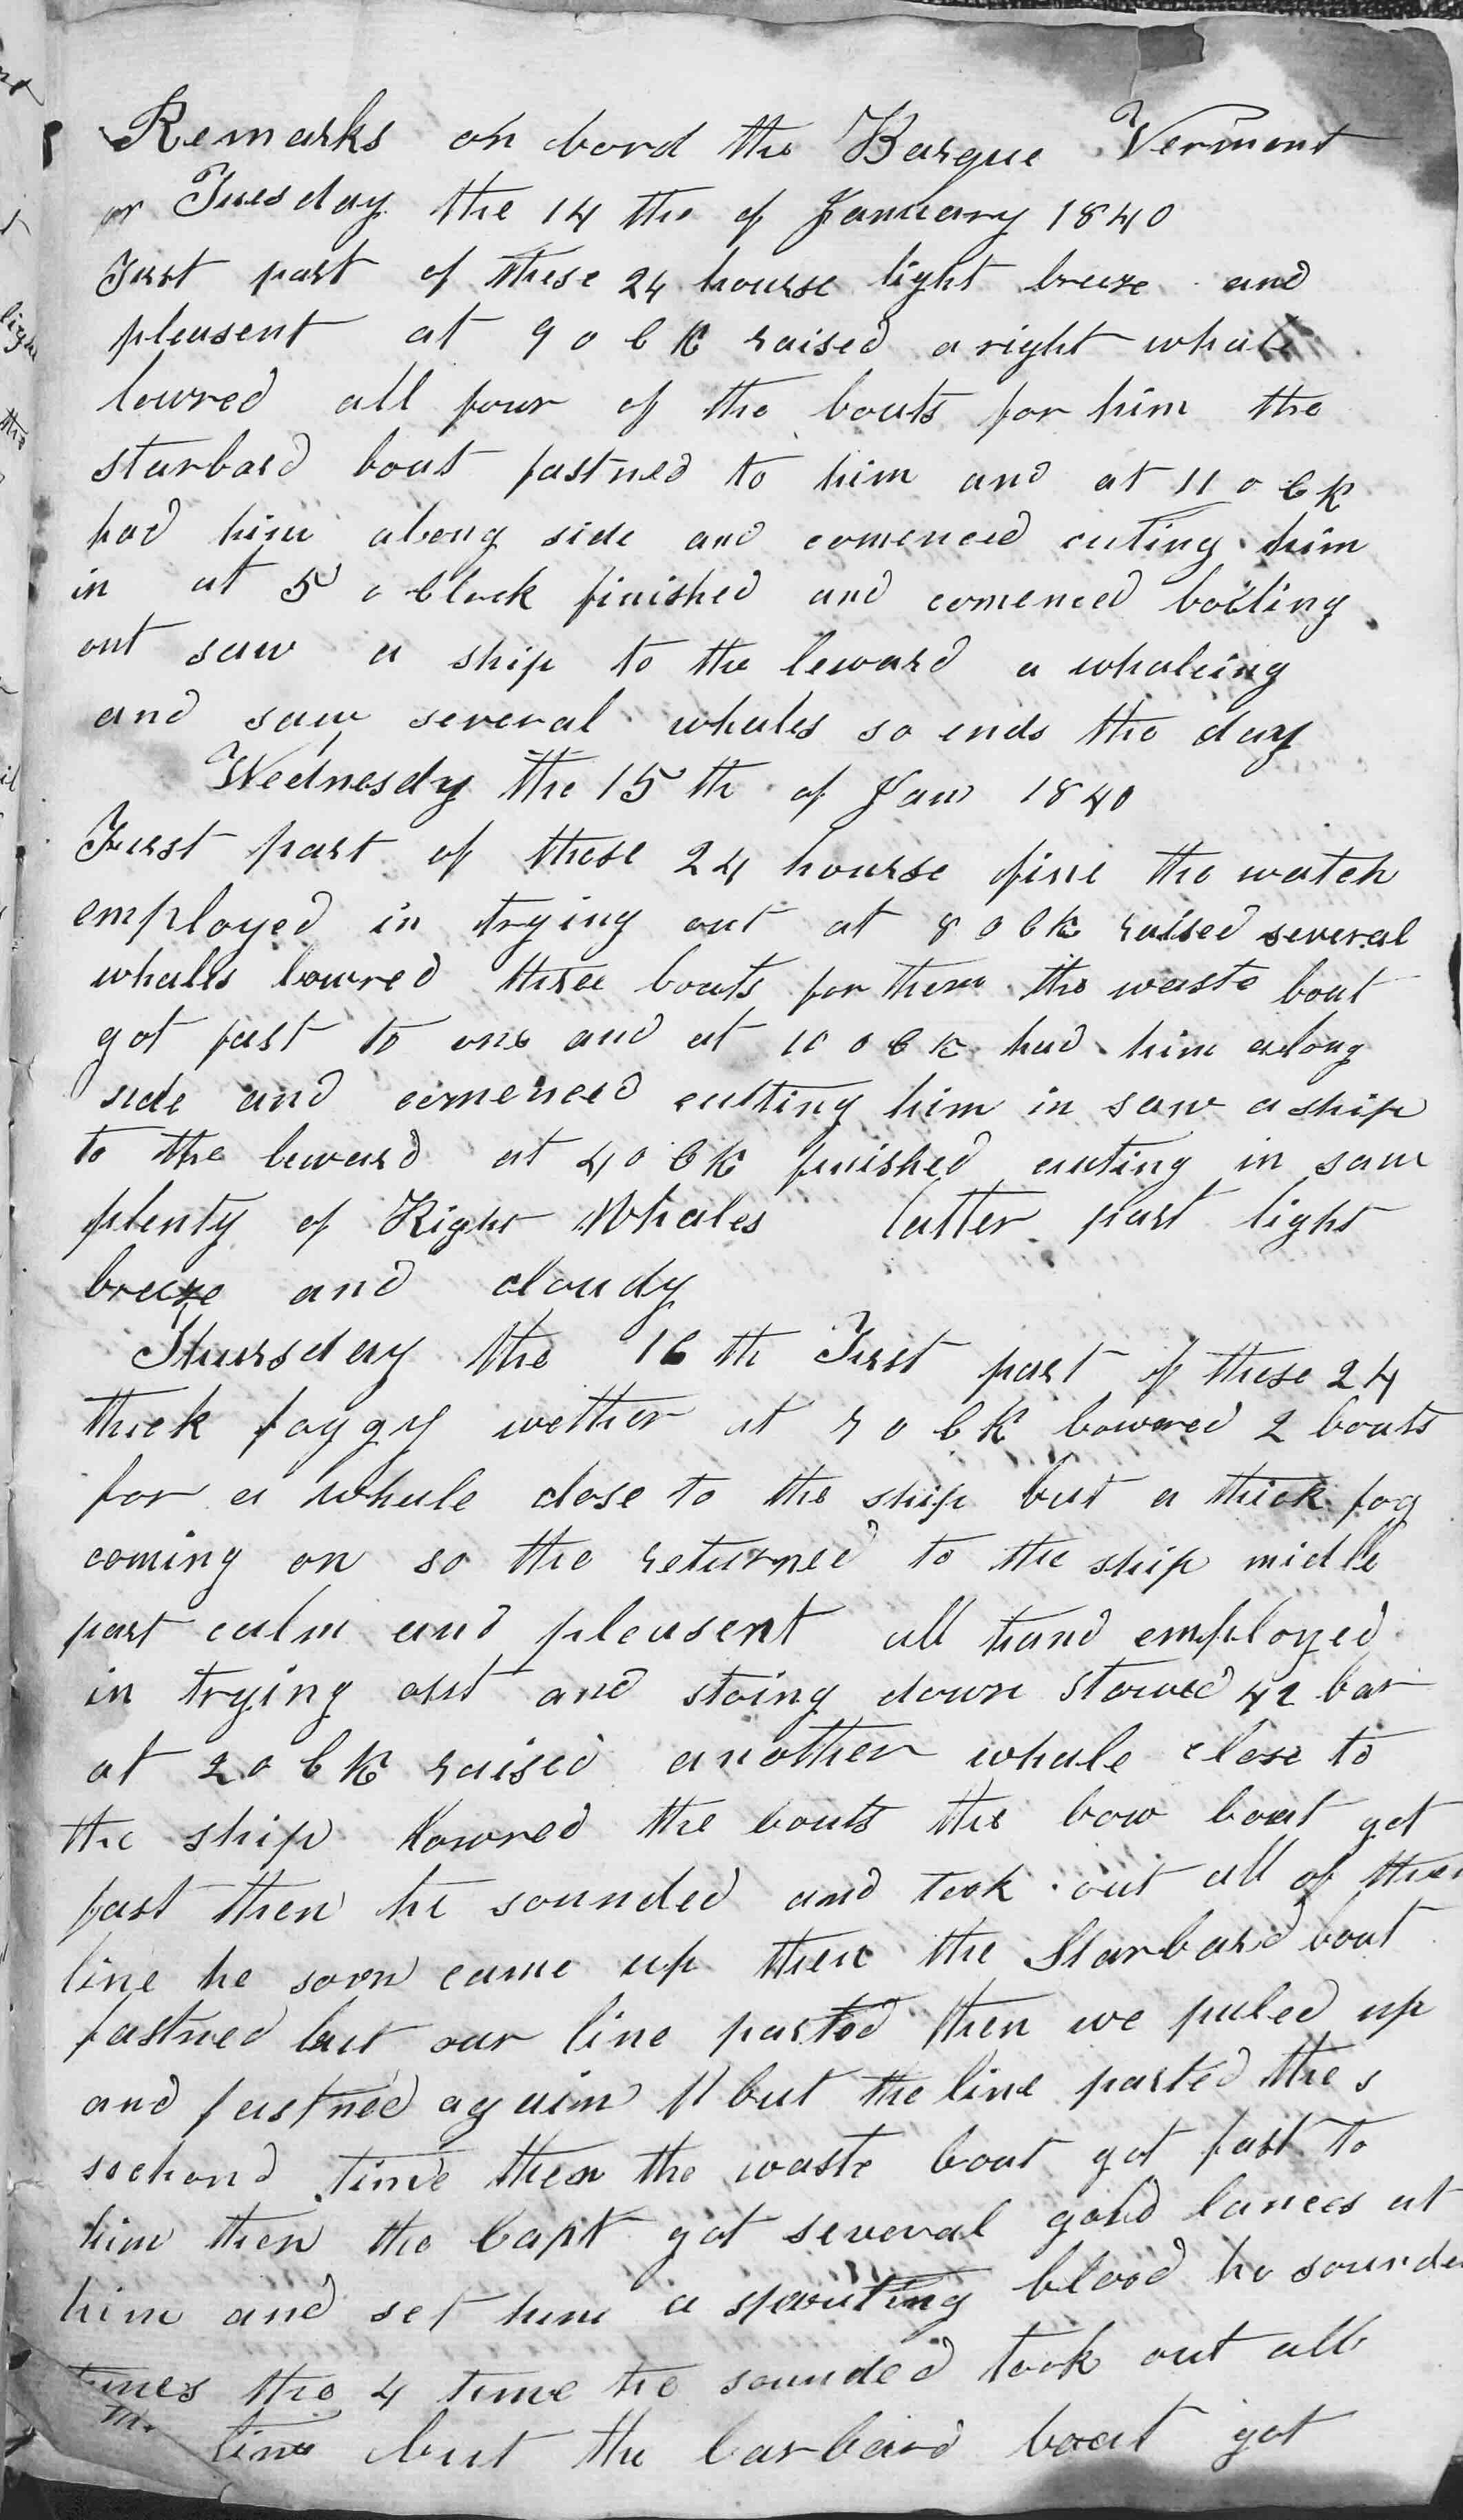 Remarks on bord the Barque Vermont
on Tuesday the 14 th of January 1840
First part of these 24 hourse light breeze and
pleasent at 9 o Ck raised a right whale
lowred all four of the boats for him the
starbard boat fastned to him and at 11 o Ck
had him along side and comenced cuting him
in at 5 o Clock finished and comenced boiling
out saw a ship to the leward a whaleing
and saw several whales so ends the day
Wednesdy the 15 th of Jan 1840
First part of these 24 hourse fine the watch
employed in trying out at 8 o Ck raised several
whales lowred three boats for them the waste boat
got fast to one and at 10 o Ck had him along
side and comenced cutting him in saw a ship
to the leward at 4 o Ck finished cuting in saw
plenty of Right Whales latter part light
breeze and cloudy
Thursday the 16 th First part of these 24
thick foggy wether at 9 o Ck lowered 2 boats
for a whale close to the ship but a thick fog
coming on so the returned to the ship midle
part calm and pleasent all hand employed
in trying out and stoing down stowed 42 bar
at 2 o Ck raised another whale close to
the ship lowred the bouts the bow boat got
fast then he sounded and took out all of their
line he soon came up then the Starbard boat
fastned but our line parted then we puled up
and fastned again but the line parted the s
sechond time then the waste boat got fast to
him then the Capt got several good lances at
him and set him a spouting blood he sounded
times the 4 time he sounded took out all
the line but the larbard boat got